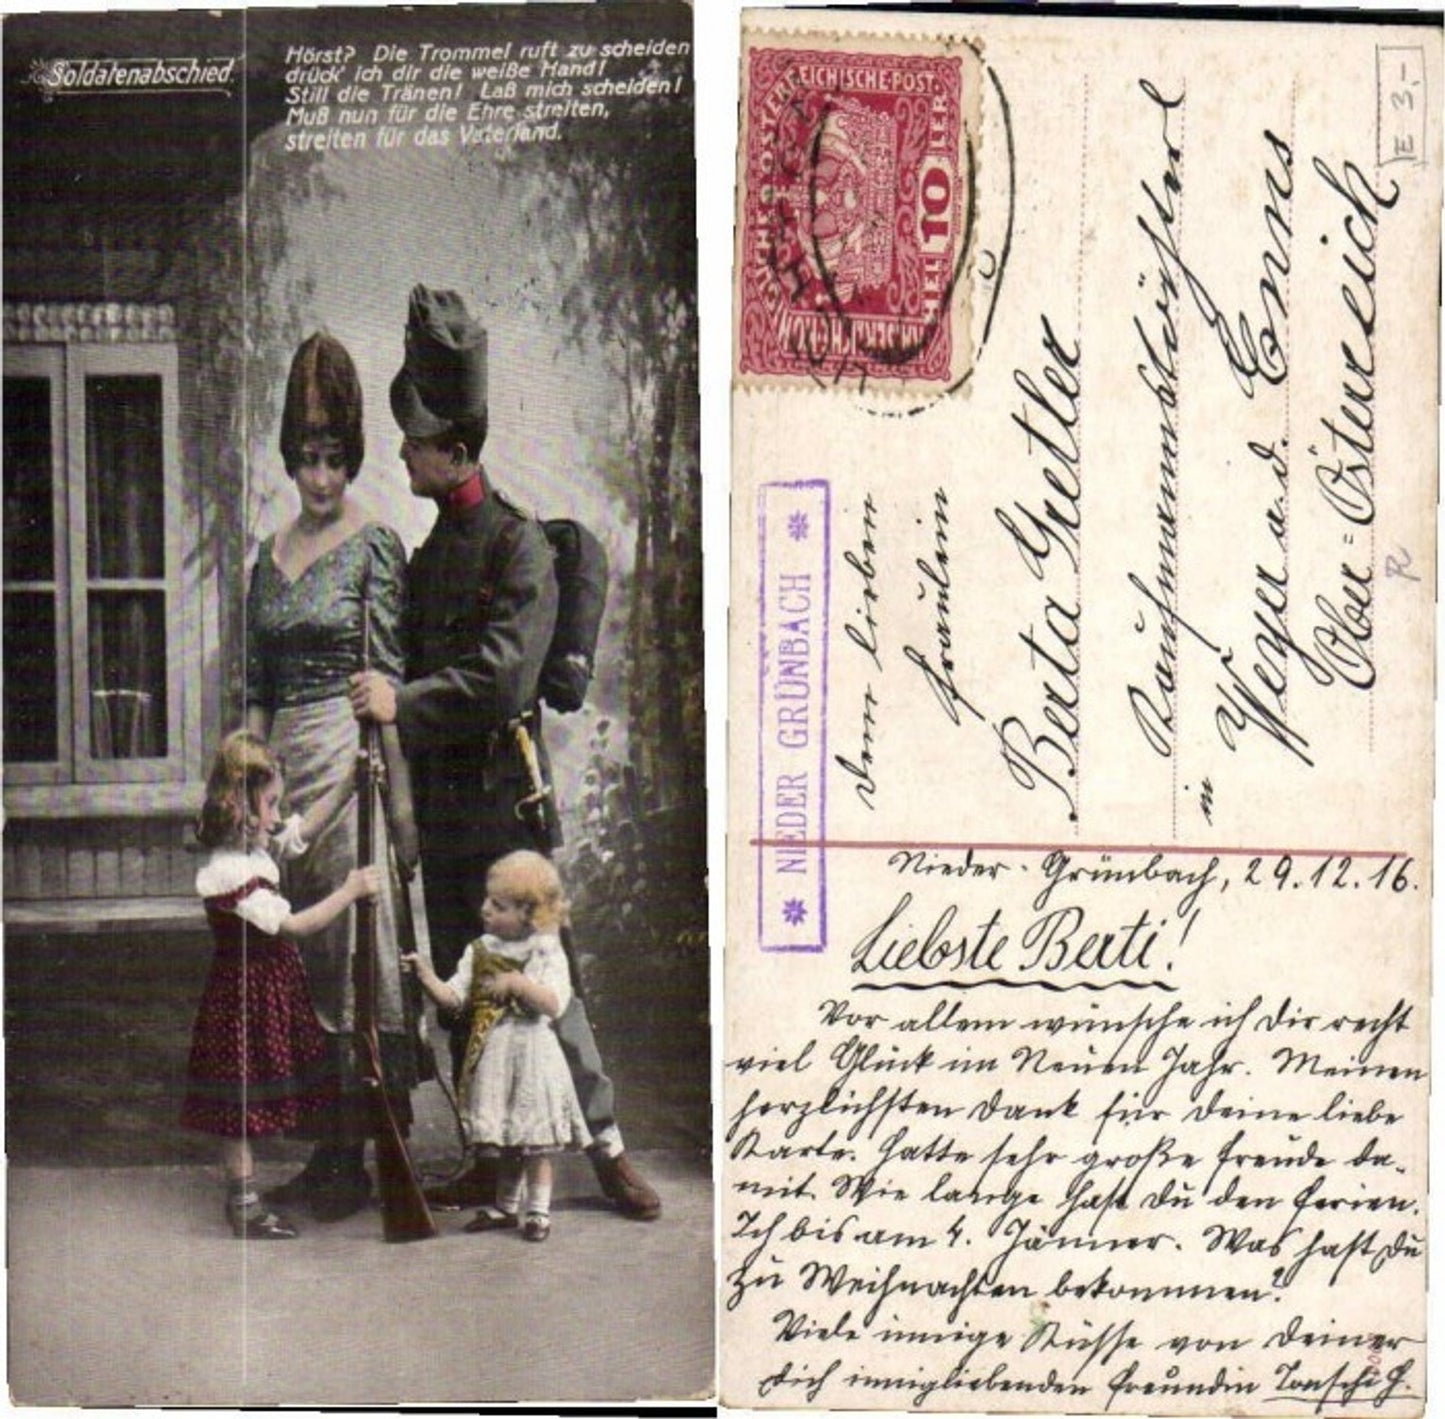 Soldatenabschied.
Hörst? Die Trommel ruft zu scheiden
drück' ich dir die weiße Hand!
Still die Tränen! Laß mich scheiden!
Muß nun für die Ehre streiten,
streiten für das Vaterland.
E 3,-
KAISERLICHE KÖNIGLICHE ÖSTERREICHISCHE POST
10 HELLER
* NIEDER GRÜNBACH *
Dem lieben
Fräulein
Berta Gretler
Kaufmannstöchterl
in
Weyer a. d. Enns
Ober=Österreich
R
Nieder-Grünbach, 29.12.16.
Liebste Berti!
Vor allem wünsche ich Dir recht
viel Glück im Neuen Jahr. Meinen
herzlichsten Dank für Deine liebe
Karte. Hatte sehr große Freude da-
mit. Wie lange hast Du den Ferien.
Ich bis am 4. Jänner. Was hast Du
zu Weihnachten bekommen?
Viele innige Küsse von Deiner
Dich innigliebenden Freundin